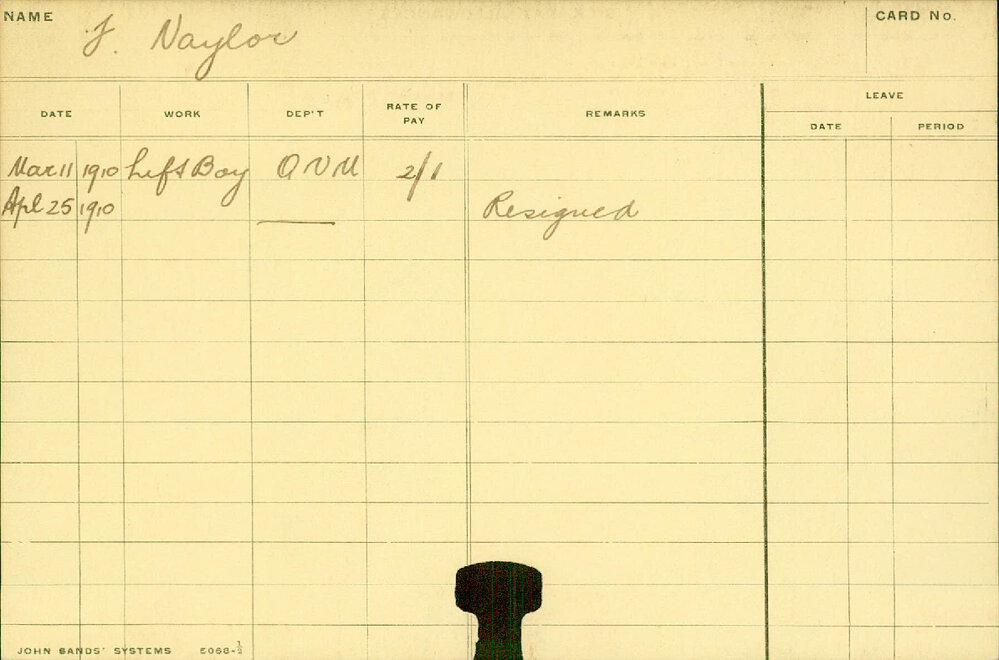 NAME F. Naylor CARD No.
DATE WORK DEP'T RATE OF PAY REMARKS LEAVE
DATE PERIOD
Mar 11 1910 Lift Boy Q V M 2/1
Apl 25 1910 — Resigned
JOHN SANDS' SYSTEMS 5068-½